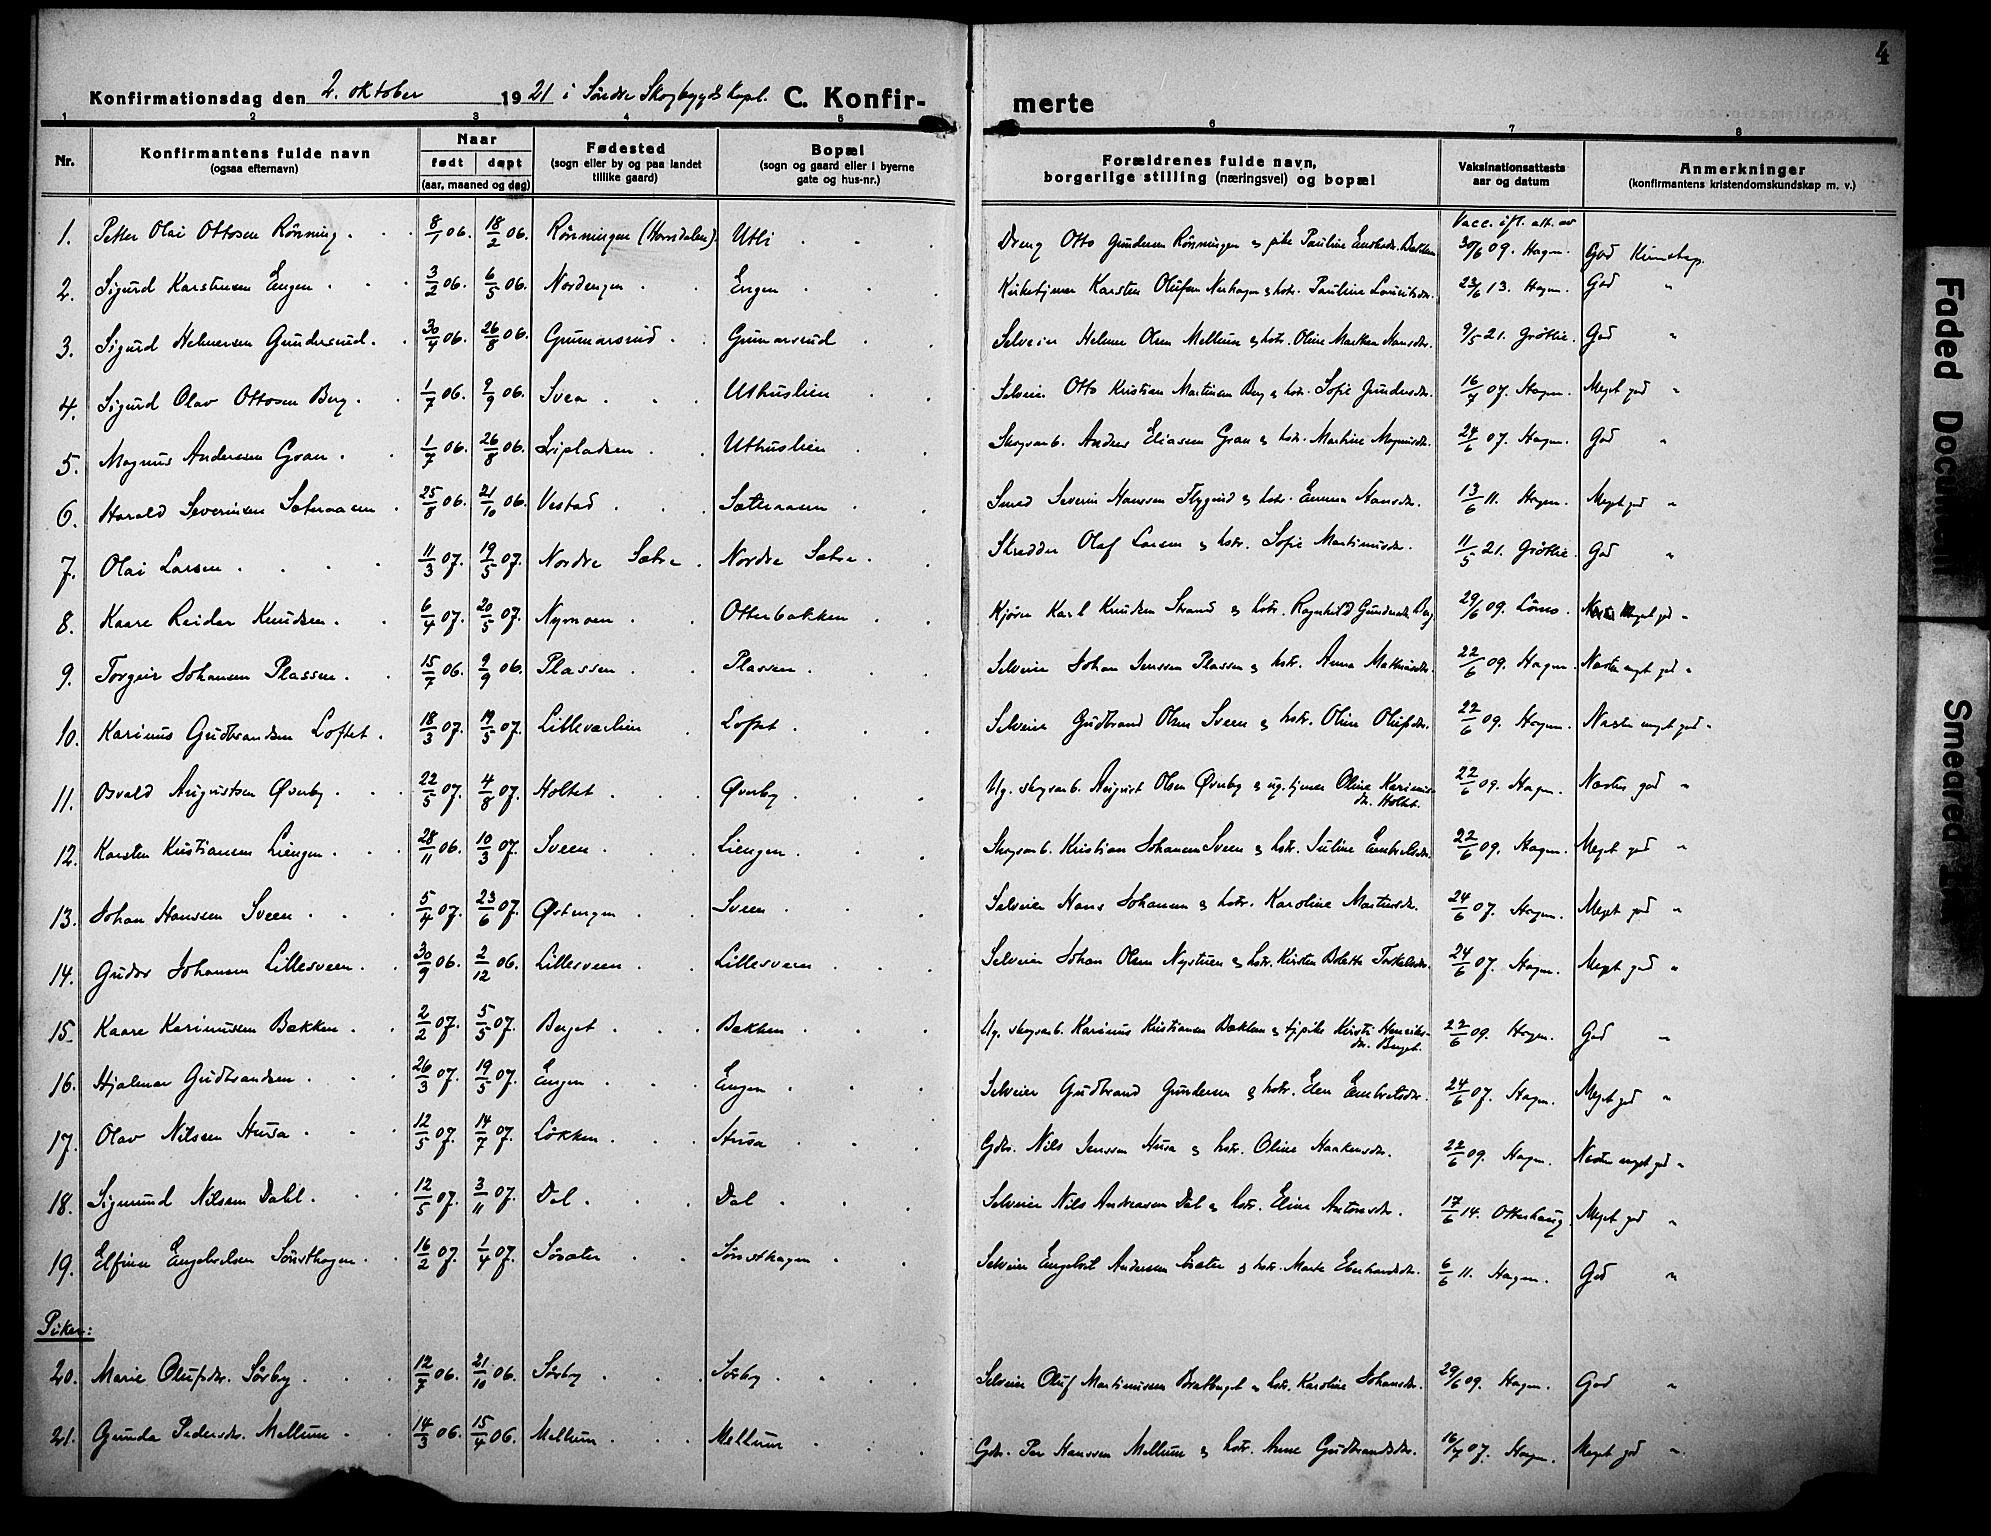 4
Konfirmationsdag den 2. oktober 1921 i Söndre Skogbygds kapl. C. Konfir-merte
1 2 3 4 5 6 7 8
Nr. Konfirmantens fulde navn (ogsaa efternavn) Naar født døpt (aar, maaned og dag) Fødested (sogn eller by og paa landet tillike gaard) Bopæl (sogn og gaard eller i byerne gate og hus-nr.) Forældrenes fulde navn, borgerlige stilling (næringsvei) og bopæl Vaksinationsattests aar og datum Anmerkninger (konfirmantens kristendomskundskap m. v.)
Vacc. ifl. att. av
1. Petter Olai Ottosen Rönning 8/1 06. 18/2 06. Rönningen Utli Dreng Otto Gundersen Rönningen og pike Pauline Bakken 30/6 09. Hagen. God Kunskap.
2. Sigurd Karstensen Engen 3/2 06. 6/5 06. Nordengen Engen Kirketjener Karsten Olufsen Nerhagen og hstr. Pauline Lauritsdr. 23/6 13. Hagen. God "
3. Sigurd Helmersen Gundersrud 30/4 06. 26/8 06. Gunnarsrud Gunnarsrud Selveier Helmer Olsen Mellum og hstr. Oline Marthea Hansdr. 9/5 21. Gröttie. God "
4. Sigurd Olav Ottosen Berg 1/7 06. 9/9 06. Svea Uthuslien Selveier Otto Kristian Martinsen Berg og hstr. Sofie Gundersdr. 16/7 07. Hagen. Meget god "
5. Magnus Andersen Gran 1/7 06. 26/8 06. Uthuslien Skogsarb. Anders Eliassen Gran og hstr. Martine Magnusdr. 24/6 07. Hagen. God "
6. Harald Severinsen Sæteraasen 25/8 06. 21/10 06. Vestad Sætteraasen Smed Severin Hanssen Flygind og hstr. Emma Hansdr. 13/6 11. Hagen. Meget god "
7. Olai Larsen 11/3 07. 19/5 07. Nordre Sætre Nordre Sætre Skredder Olaf Larsen og hstr. Sofie Martinusdr. 11/5 21. Gröttie. God "
8. Kaare Reidar Knudsen 6/4 07. 20/5 07. Nymoen Otterbakken Kjører Karl Knudsen Strand og hstr. Ragnhild Gundersdr. Berg 29/6 09. Lömo. Meget god "
9. Torgeir Johansen Plassen 15/7 06. 9/9 06. Plassen Plassen Selveier Johan Jenssen Plassen og hstr. Anna Mathiasdr. 22/6 09. Hagen. Næsten meget god "
10. Karinus Gudbrandsen Loftet 18/3 07. 19/5 07. Lillevælien Loftet Selveier Gudbrand Olsen Sveen og hstr. Oline Olufsdr. 22/6 09. Hagen. Næsten meget god "
11. Osvald Augustsen Øverby 22/5 07. 4/8 07. Holtet Øverby Ug. skogsarb. August Olsen Øverby og ug. tjener Oline Karinus-
dr. Holtet. 22/6 09. Hagen. Næsten god "
12. Karsten Kristiansen Liengen 28/11 06. 10/3 07. Sveen Liengen Skogsarb. Kristian Johansen Sveen og hstr. Juline Embretsdr. 22/6 09. Hagen. Meget god "
13. Johan Hanssen Sveen 5/4 07. 23/6 07. Østengen Sveen Selveier Hans Johansen og hstr. Karoline Martinsdr. 24/6 07. Hagen. Meget god "
14. Gudor Johansen Lillesveen 30/9 06. 2/12 06. Lillesveen Lillesveen Selveier Johan Olsen Nystuen og hstr. Kirsten Bolette Torkelsdr. 24/6 07. Hagen. Meget god "
15. Kaare Karinusen Bækken 2/2 07. 5/5 07. Berget Bækken Ug. skogsarb. Karinus Kristiansen Bækken og tjpike Kirsti Henriks-
dr. Berget. 22/6 09. Hagen. God "
16. Hjalmar Gudbrandsen 26/3 07. 19/5 07. Engen Engen Selveier Gudbrand Gundersen og hstr. Elen Embretsdr. 24/6 07. Hagen. Meget god "
17. Olav Nilssen Husa 12/5 07. 14/7 07. Løkken Husa Gdbr. Nils Jenssen Husa og hstr. Oline Haakensdr. 22/6 09. Hagen. Næsten meget god "
18. Sigmund Nilsen Dahl 12/5 07. 3/11 07. Dal Dal Selveier Nils Andreassen Dal og hstr. Eline Antonsdr. 17/6 14. Otterhaug. Meget god "
19. Elfinn Engebretsen Sönsthagen 16/2 07. 1/4 07. Sösæter Sönsthagen Selveier Engebret Andersen Sösæter og hstr. Marte Eberhardsdr. 6/6 11. Hagen. God "
Piker:
20. Marie Olufsdr. Sörby 12/7 06. 21/10 06. Sörby Sörby Selveier Oluf Martinussen Bratberget og hstr. Karoline Johansdr. 29/6 09. Hagen. God "
21. Gunda Pedersdr. Mellum 14/3 06. 15/4 06. Mellum Mellum Gdbr. Per Hanssen Mellum og hstr. Anne Gudbrandsdr. 16/7 07. Hagen. Meget god "
Faded Document
Smeared Ink